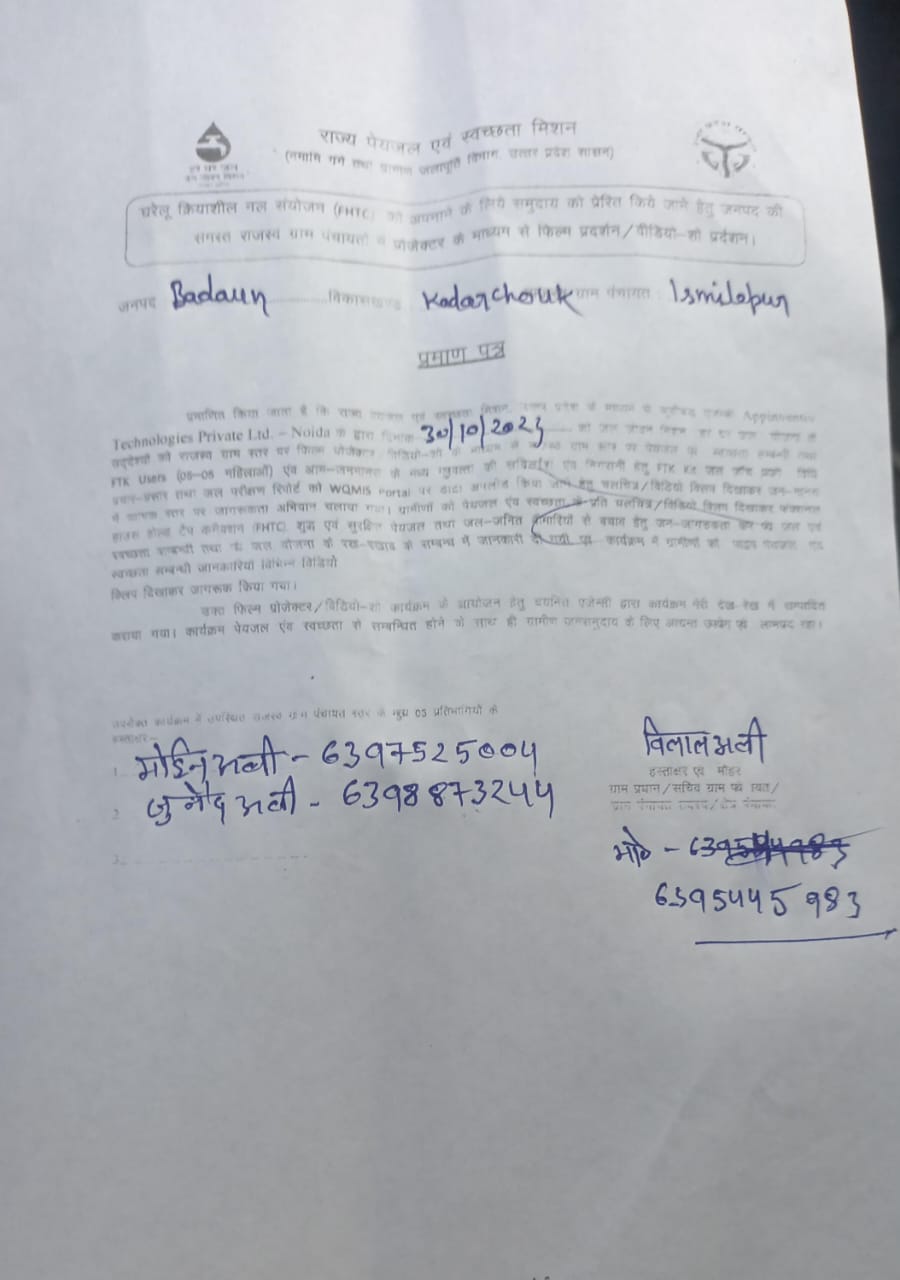 राज्य पेयजल एवं स्वच्छता मिशन
(नमामि गंगे तथा ग्रामीण जलापूर्ति विभाग, उत्तर प्रदेश शासन)
घरेलू क्रियाशील नल संयोजन (FHTC) को अपनाने के लिये समुदाय को प्रेरित किये जाने हेतु जनपद की
समस्त राजस्व ग्राम पंचायतों में प्रोजेक्टर के माध्यम से फिल्म प्रदर्शन/वीडियो-शो प्रदर्शन।
जनपद Badaun विकासखण्ड Kadarchouk ग्राम पंचायत Ismilapur
प्रमाण पत्र
प्रमाणित किया जाता है कि राज्य पेयजल एवं स्वच्छता मिशन, उत्तर प्रदेश के माध्यम से
Technologies Private Ltd. – Noida के द्वारा दिनांक 30/10/2023 को जल जीवन मिशन हर घर जल योजना के
उद्देश्यों को राजस्व ग्राम स्तर पर फिल्म प्रोजेक्टर
FTK Users (05-05 महिलाओं) एवं आम-जनमानस के मध्य FTK Kit जल जाँच
प्रचार-प्रसार तथा जल परीक्षण रिपोर्ट को WQMIS Portal पर डाटा अपलोड किया जाने हेतु चलचित्र/विडियो क्लिप दिखाकर जन-मानस
में व्यापक स्तर पर जागरूकता अभियान चलाया गया। ग्रामीणों को पेयजल एंव स्वच्छता के प्रति चलचित्र/विडियो क्लिप दिखाकर
हाउस होल्ड टैप कनेक्शन (FHTC), शुद्ध एवं सुरक्षित पेयजल तथा जल-जनित बीमारियों से बचाव हेतु जन-जागरुकता जल एवं
स्वच्छता सम्बन्धी तथा जल योजना के रख-रखाव के सम्बन्ध में जानकारी दी गयी कार्यक्रम में ग्रामीणों को पाइप पेयजल एवं
स्वच्छता सम्बन्धी जानकारियां विभिन्न विडियो
क्लिप दिखाकर जागरूक किया गया।
उक्त फिल्म प्रोजेक्टर/विडियो-शो कार्यक्रम के आयोजन हेतु चयनित एजेन्सी द्वारा कार्यक्रम मेरी देख-रेख में सम्पादित
कराया गया। कार्यक्रम पेयजल एंव स्वच्छता से सम्बन्धित होने के साथ ही ग्रामीण जनसमुदाय के लिए लाभप्रद रहा।
उपरोक्त कार्यक्रम में उपस्थित राजस्व ग्राम पंचायत स्तर के मुख्य 05 प्रतिभागियों के
हस्ताक्षर:-
1. मोहिन अली - 6397525004
2. जुनैद अली - 6398873244
3.
विलाल अली
हस्ताक्षर एवं मोहर
ग्राम प्रधान/सचिव ग्राम पंचायत/
मो० -
6395445983